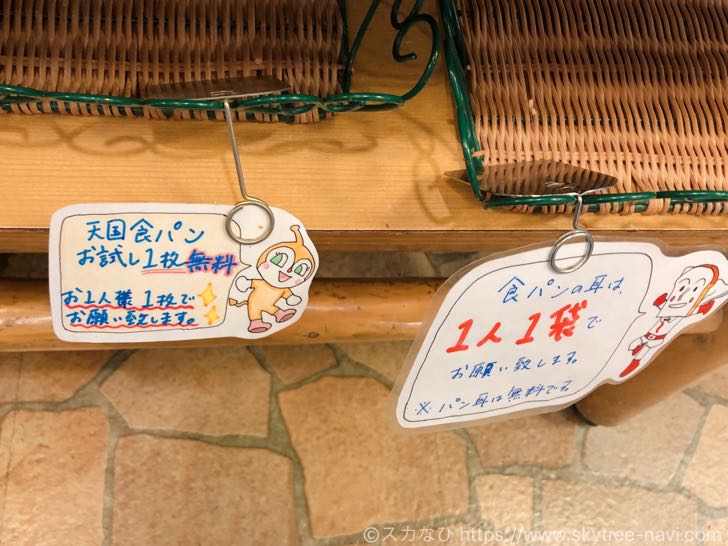 天国食パン
お試し1枚無料
お1人様1枚で
お願い致します。
食パンの耳は、
1人1袋で
お願い致します。
※パン耳は無料です。
©スカなび https://www.skytree-navi.com/